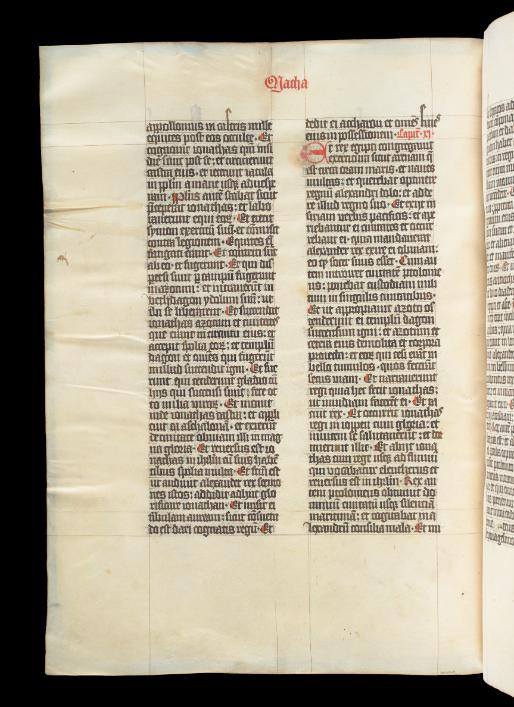 Macha
appollonius in castris mille
equites post eos occulte. Et
cognouit ionathas qm̄ insi
die sunt post se: et circuierunt
castra eius: et iecerunt iacula
in pplm a mane usq; ad uesp
ram. Pplus autē stabat sicut
preceperat ionathas: et labo
rauerunt equi eorū. Et eiecit
symon exercitū suū: et cōmisit
contra legionem. Equites em̄
fatigati erant. Et contriti sūt
ab eo: et fugerunt. Et qui dis
persi sunt p campū fugerunt
in azotum: et intrauerunt in
bethdagon ydolum suū: ut
ibi se liberarent. Et succendit
ionathas azotum et ciuitates
que erant in circuitu eius: et
accepit spolia eorū: et templū
dagon et omēs qui fugerūt
in illud succendit igni. Et fue
runt qui ceciderunt gladio cū
hiis qui succensi sunt: fere oc
to milia uiroū. Et mouit
inde ionathas castra: et appli
cuit ea ascalonā: et exierūt
de ciuitate obuiam illi in mag
na gloria. Et reuersus est io
nathas in ihrlm cū suis habē
tibus spolia multa. Et factū est
ut audiuit alexander rex sermo
nes istos: addidit adhuc glo
rificare ionathan. Et misit ei
fibulam auream: sicut cōsuetu
do est dari cognatis regū. Et
dedit ei accharon et omēs fines
eius in possessionem. Capit. xi.
Et rex egypti congregauit
exercitum sicut arenam que
est circa oram maris: et naues
multas: et querebat optinere
regnū alexandri dolo: et adde
re illud regno suo. Et exiit in
siriam uerbis pacificis: et ape
riebantur ei ciuitates et occur
rebant ei: quia mandauerat
alexander rex exire ei obuiam:
eo quod socer suus esset. Cum au
tem introiret ciuitatē ptolome
us: ponebat custodiam mili
tum in singulis ciuitatibus.
Et ut appropiauit azoto os
tenderunt ei templū dagon
succensum igni: et azotum et
cetera eius demolita et corpora
proiecta: et eorū qui cesi erāt in
bello tumulos: quos fecerāt
secus uiam. Et narrauerunt
regi quia hec fecit ionathas:
ut inuidiam facerēt ei. Et ta
cuit rex. Et occurrit ionathas
regi in ioppen cum gloria: et
inuicem se salutauerūt: et dor
mierunt illic. Et abiit iona
thas cum rege usq; ad fluuiū
qui uocabatur eleutherus: et
reuersus est in ihrlm. Rex au
tem ptolomeus obtinuit do
minium ciuitatū usq; seleuciā
maritimā: et cogitabat in a
lexandrū consilia mala. Et mi